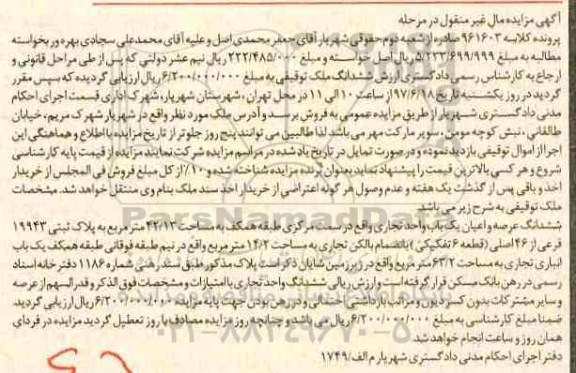 آگهی مزایده مال غیر منقول در مرحله
پرونده کلاسه ۹۶۱۶۰۳ صادره از شعبه دوم حقوقی شهریار آقای جعفر محمدی اصل و علیه آقای محمدعلی سجادی بهره ور بخواسته
مطالبه به مبلغ ۵/۲۳۳/۶۹۹/۹۹۹ ریال اصل خواسته و مبلغ ۲۲۲/۴۸۵/۰۰۰ ریال نیم عشر دولتی که پس از طی مراحل قانونی و
ارجاع به کارشناس رسمی دادگستری ارزش ششدانگ ملک توقیفی به مبلغ ۶/۲۰۰/۰۰۰/۰۰۰ ریال ارزیابی گردیده که سپس مقرر
گردید در روز یکشنبه تاریخ ۹۷/۶/۱۸ از ساعت ۱۰ الی ۱۱ در محل تهران ، شهرستان شهریار، شهرک اداری قسمت اجرای احکام
مدنی دادگستری شهریار از طریق مزایده عمومی به فروش برسد و آدرس ملک مورد نظر واقع در شهریار شهرک مریم، خیابان
طالقانی ، نبش کوچه مومن ، سوپر مارکت مهر می باشد لذا طالبین می توانند پنج روز جلوتر از تاریخ مزایده با اطلاع و هماهنگی این
اجرا از اموال توقیفی بازدید نموده و در صورت تمایل در تاریخ یاد شده در مراسم مزایده شرکت نمایند مزایده از قیمت پایه کارشناسی
شروع و هر کسی بالاترین قیمت را پیشنهاد نماید بعنوان برنده مزایده شناخته شده و ۱۰٪ از کل مبلغ فروش فی المجلس از خریدار
اخذ و باقی پس از گذشت یک هفته و عدم وصول هر گونه اعتراضی از خریدار اخذ سند ملک بنام وی منتقل خواهد شد. مشخصات
ملک توقیفی به شرح زیر می باشد.
ششدانگ عرصه و اعیان یک باب واحد تجاری واقع در سمت مرکزی طبقه همکف به مساحت ۴۲/۱۳ متر مربع به پلاک ثبتی ۱۹۹۴۳
فرعی از ۴۶ اصلی (قطعه ۶ تفکیکی) بانضمام بالکن تجاری به مساحت ۱۴/۰۲ متر مربع واقع در نیم طبقه فوقانی طبقه همکف یک باب
انباری تجاری به مساحت ۶۳/۲ متر مربع واقع در زیرزمین شایان ذکر است پلاک مذکور طبق سند رهنی شماره ۱۱۸۶ دفتر خانه اسناد
رسمی در رهن بانک مسکن قرار گرفته است و ارزش ریالی ششدانگ واحد تجاری با امتیازات و مشخصات فوق الذکر و قدرالسهم از عرصه
و سایر مشترکات بدون کسر دیون و مراتب بازداشتی احتمالی و در رهن بودن جهت پایه مزایده ۶/۲۰۰/۰۰۰/۰۰۰ ریال ارزیابی گردید
ضمنا مبلغ کارشناسی به مبلغ ۶/۲۰۰/۰۰۰/۰۰۰ ریال می باشد و چنانچه روز مزایده مصادف با روز تعطیل گردید مزایده در فردای
همان روز و ساعت انجام خواهد شد.
دفتر اجرای احکام مدنی دادگستری شهریار م الف/۱۷۴۹